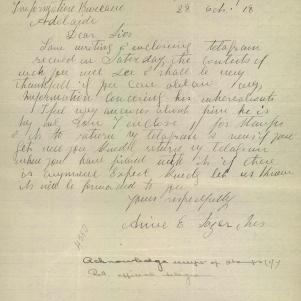 Information Bureau 28 Oct. 18
Adelaide
Dear Sirs
I am writing & inclosing telegram
received on Saturday the contents of
wich you will see I shall be very
thankfull if you can obtain any
Information concerning his whereabouts
I feel very anxious about him he is
my only son I enclose for stamps
as to return my telegram & news if you
get will you kindly return my telegram
when you have finished with it if there
is any expense kindly let us know
it will be forwarded to you
Yours respectfully
Annie E
Acknowledge
Ret. official telegram